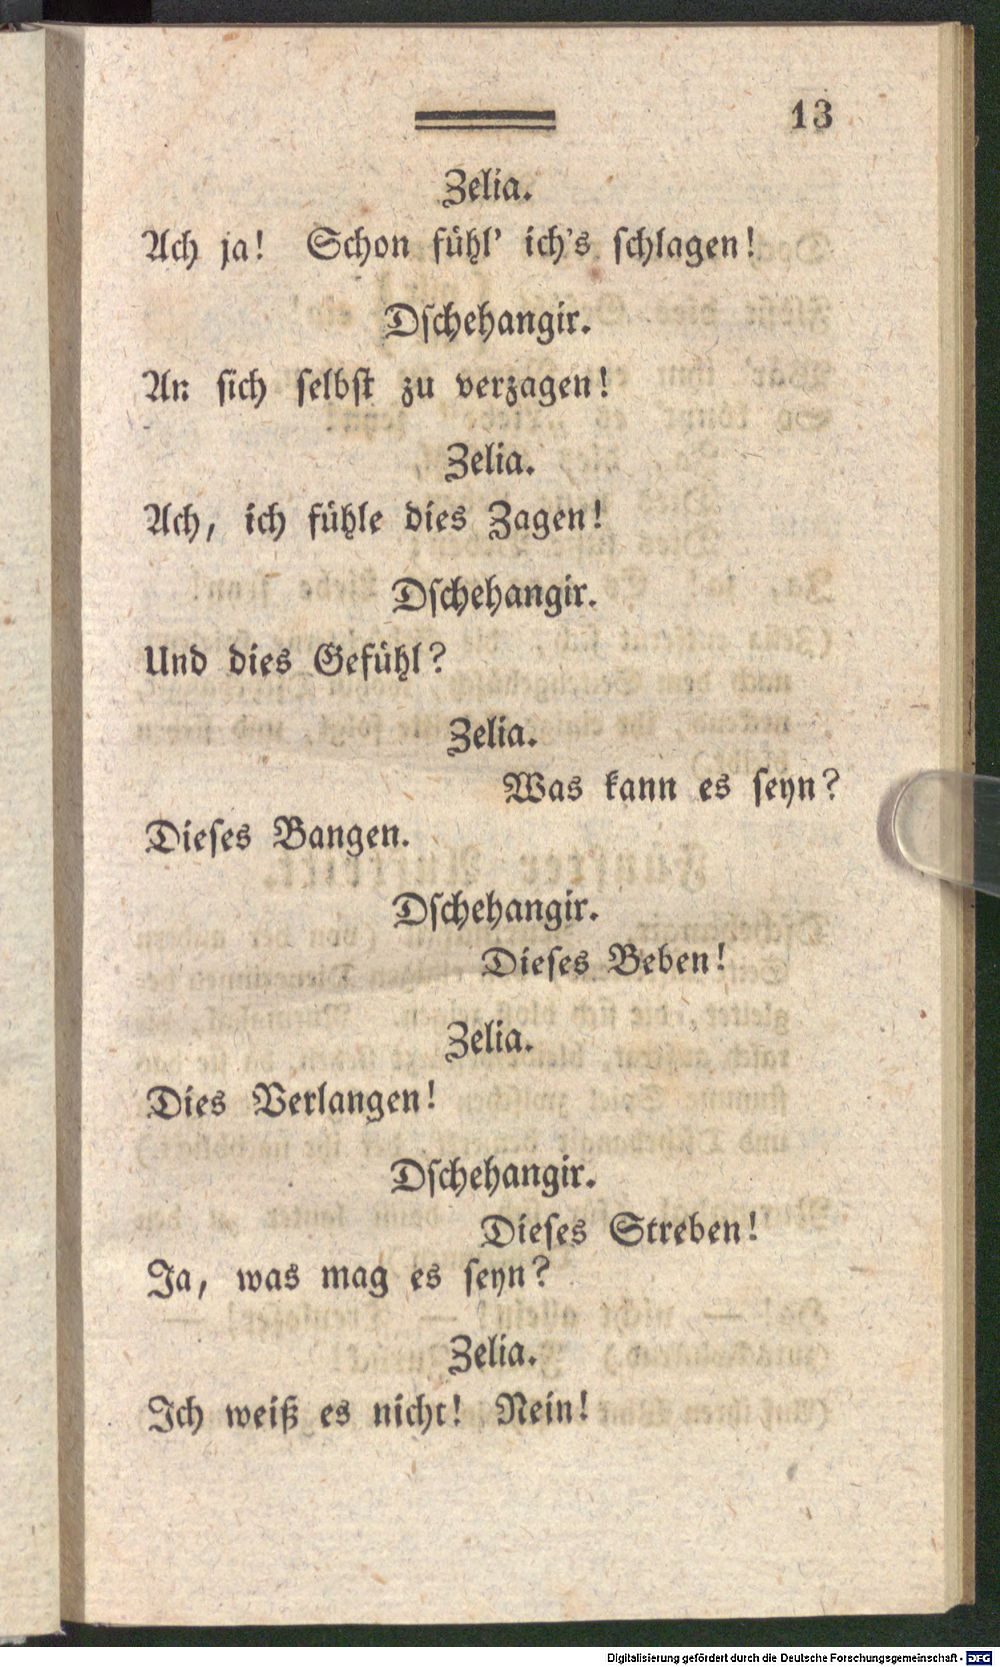 13
Zelia.
Ach ja! Schon fühl' ich's ſchlagen!
Dſchehangir.
An ſich ſelbſt zu verzagen!
Zelia.
Ach, ich fühle dies Zagen!
Dſchehangir.
Und dies Gefühl?
Zelia.
Was kann es ſeyn?
Dieſes Bangen.
Dſchehangir.
Dieſes Beben!
Zelia.
Dies Verlangen!
Dſchehangir.
Dieſes Streben!
Ja, was mag es ſeyn?
Zelia.
Ich weiß es nicht! Nein!
Digitalisierung gefördert durch die Deutsche Forschungsgemeinschaft - DFG